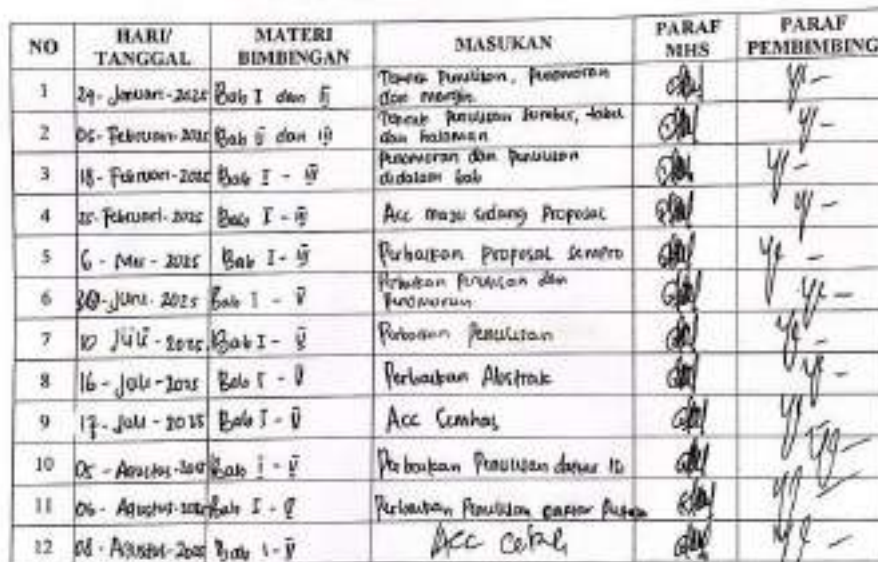 NO HARI/ TANGGAL MATERI BIMBINGAN MASUKAN PARAF MHS PARAF PEMBIMBING
1 29-Januari-2025 Bab I dan II Penulisan, Penomoran
dan margin
2 05-Februari-2025 Bab II dan III Penulisan Sumber, tabel
dan halaman
3 18-Februari-2025 Bab I - III Penomoran dan Penulisan
didalam bab
4 25-Februari-2025 Bab I - III Acc maju sidang Proposal
5 6-Mei-2025 Bab I - III Perbaikan Proposal Sempro
6 30-Juni-2025 Bab I - V Perbaikan Penulisan dan
Penomoran
7 10 Juli-2025 Bab I - V Perbaikan Penulisan
8 16-Juli-2025 Bab I - V Perbaikan Abstrak
9 17-Juli-2025 Bab I - V Acc Semhas
10 05-Agustus-2025 Bab I - V Perbaikan Penulisan
11 06-Agustus-2025 Bab I - V Perbaikan Penulisan Daftar Pustaka
12 08-Agustus-2025 Bab I - V Acc Cetak